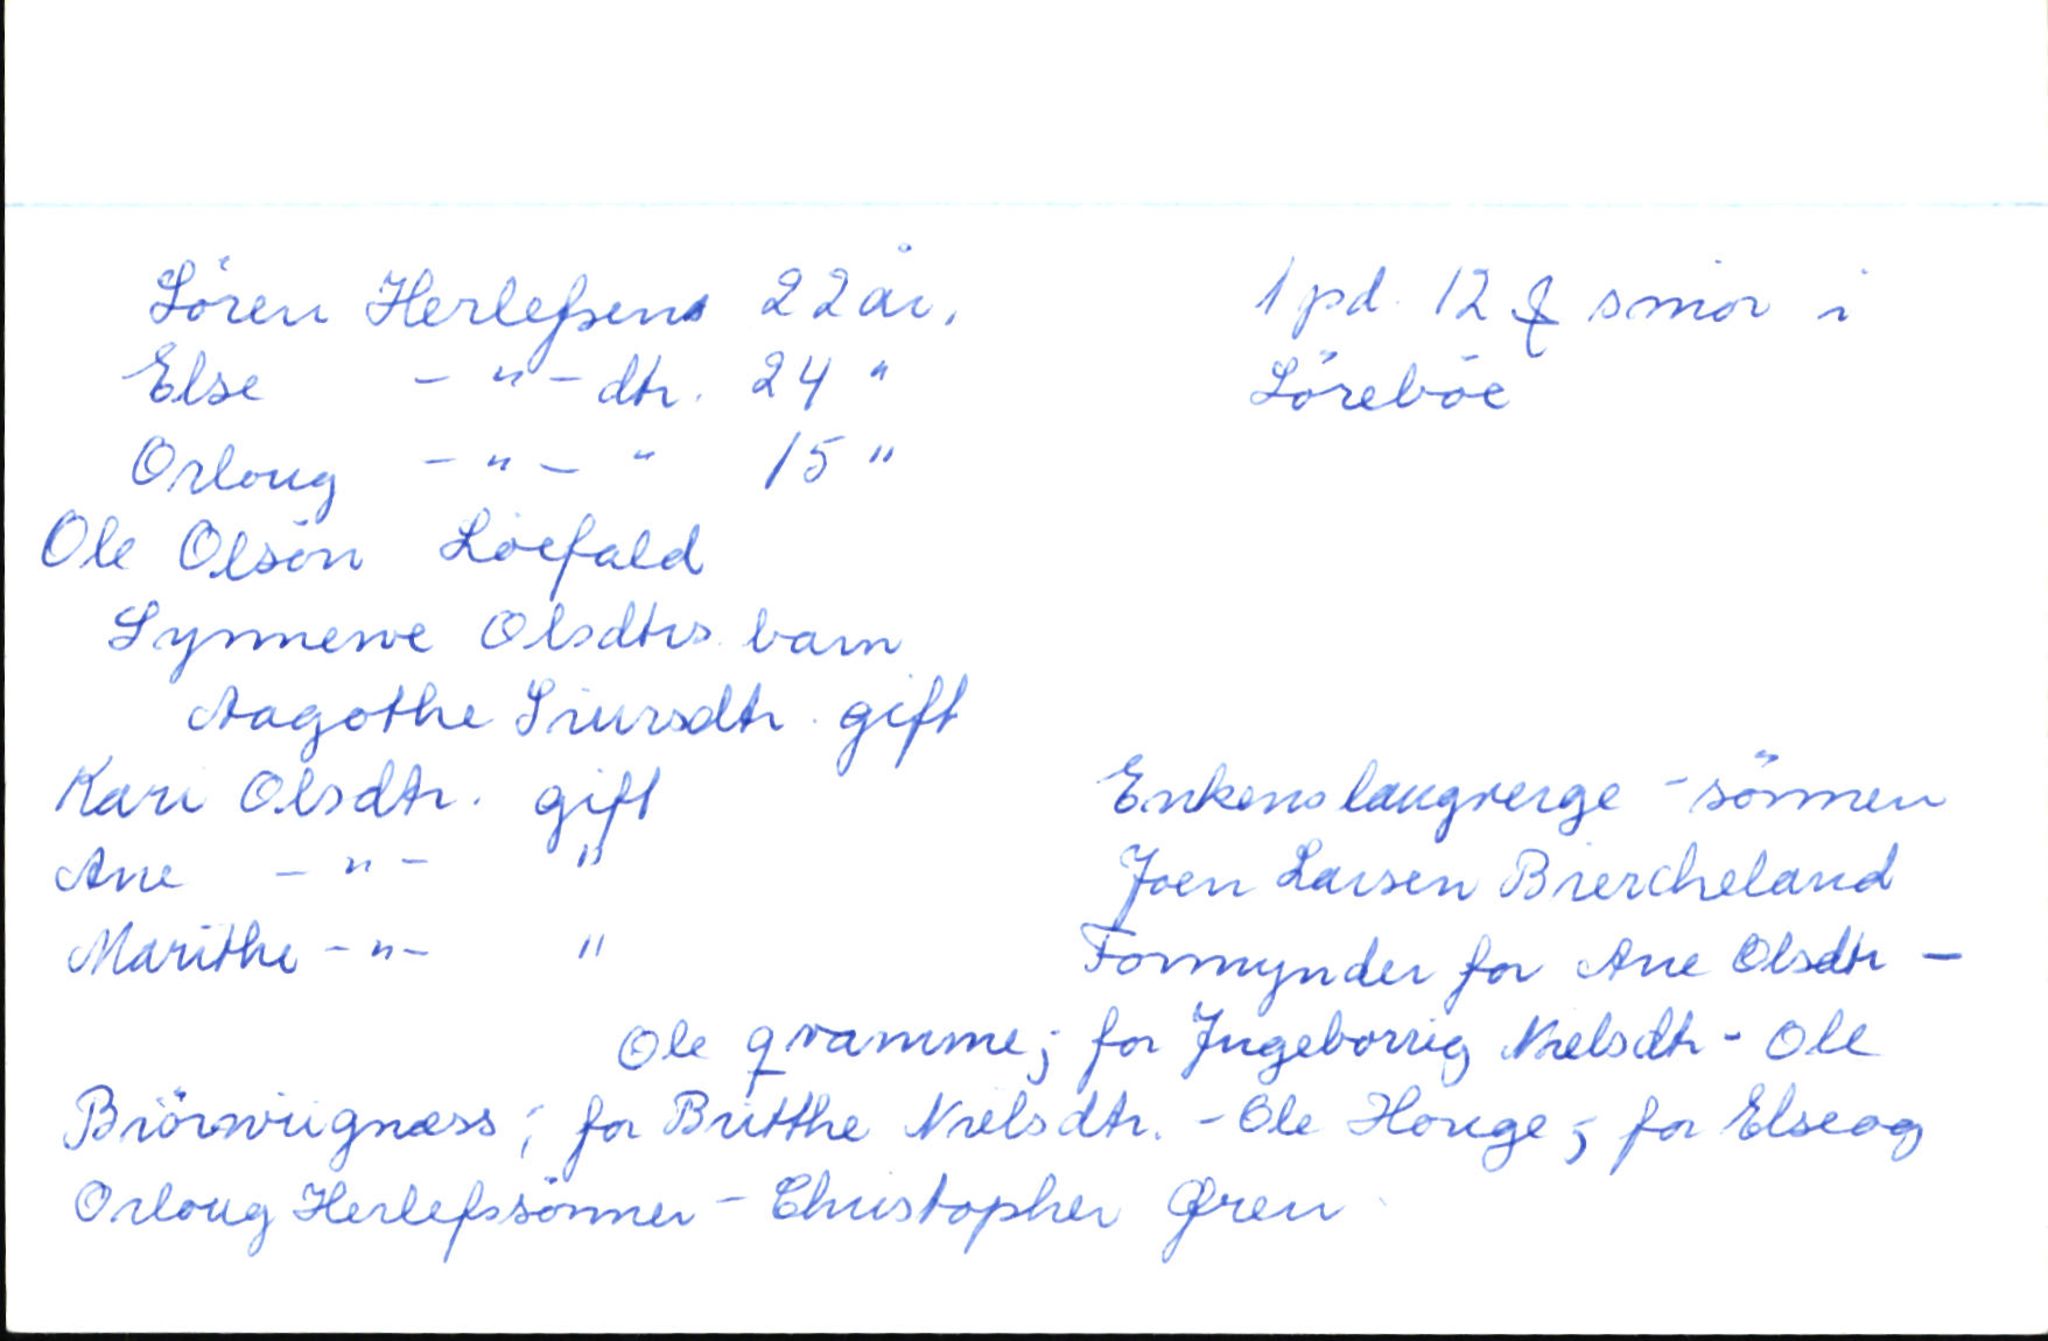 Sören Herlefsens 22 år, 1 pd. 12 ℔ smör i
Else - " - dtr. 24 " Löreböe
Orloug - " - " 15 "
Ole Olsön Löefald
Synnewe Olsdtrs barn
Aagothe Siursdtr. gift
Kari Olsdtr. gift Enkens laugverge - sönnen
Ane - " - " Joen Larsen Biercheland
Marithe - " - " Formynder for Ane Olsdtr -
Ole qvamme; for Ingeborrig Nielsdtr - Ole
Biörnviignæss; for Britthe Nielsdtr. - Ole Houge; for Else og
Orloug Herlefssönner - Christopher Øren